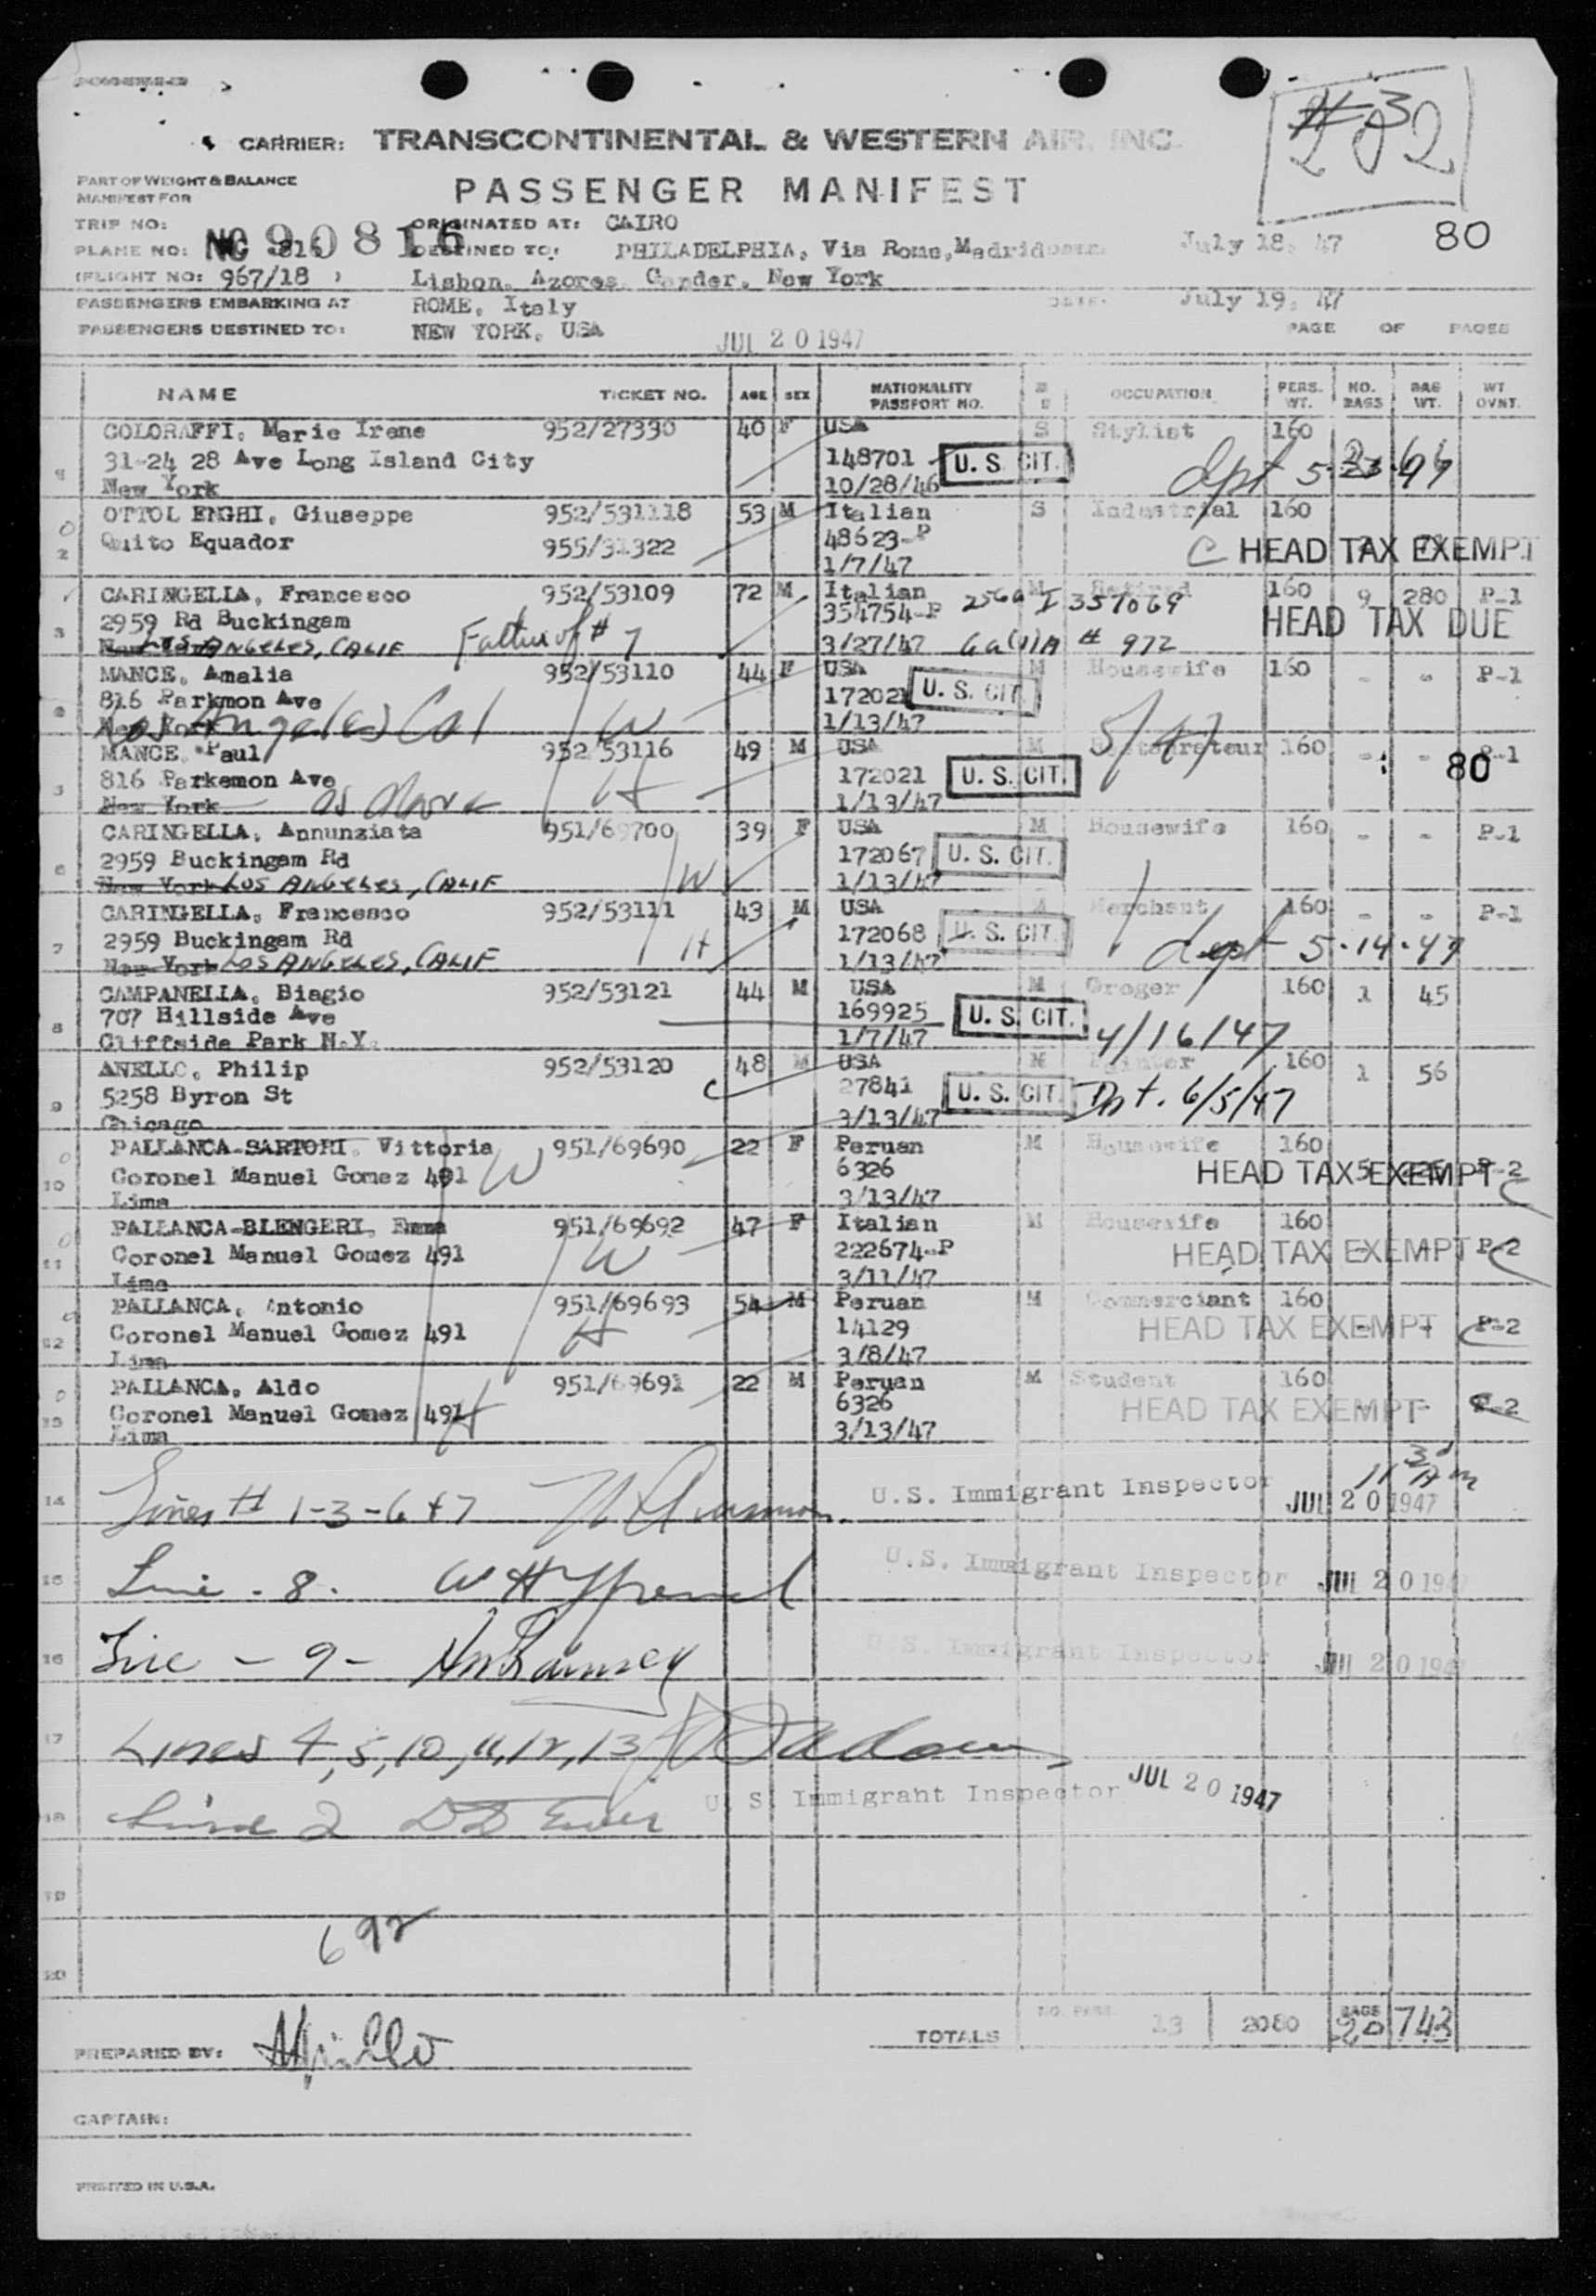 #3
202
CARRIER: TRANSCONTINENTAL & WESTERN AIR, INC.
PART OF WEIGHT & BALANCE
MANIFEST FOR
PASSENGER MANIFEST
TRIP NO:
ORIGINATED AT: CAIRO
PLANE NO: NC 90816 816 DESTINED TO: PHILADELPHIA, Via Rome, Madrid July 18, 47 80
(FLIGHT NO: 967/18 ) Lisbon, Azores, Gander, New York
PASSENGERS EMBARKING AT ROME, Italy DATE: July 19, 47
PASSENGERS DESTINED TO: NEW YORK, USA JUL 20 1947 PAGE OF PAGES
NAME TICKET NO. AGE SEX NATIONALITY PASSPORT NO. M S OCCUPATION PERS. WT. NO. BAGS BAG WT. WT OVNT.
COLORAFFI, Marie Irene 952/27330 40 F USA S Stylist 160
31-24 28 Ave Long Island City 148701 U. S. CIT. dept 5-23-47
New York 10/28/46
OTTOL ENGHI, Giuseppe 952/531118 53 M Italian S Industrial 160
2 Quito Equador 955/31322 48623-P C HEAD TAX EXEMPT
1/7/47
CARINGELLA, Francesco 952/53109 72 M Italian M Retired 160 9 280 P-1
2959 Rd Buckingam 354754-P 256a I 357069 HEAD TAX DUE
3 New York LOS ANGELES, CALIF Father of # 7 3/27/47 6a(1)A # 972
MANCE, Amalia 952/53110 44 F USA M Housewife 160 - - P-1
816 Parkmon Ave 172021 U. S. CIT.
New York Los Angeles Cal W 1/13/47 5/47
MANCE, Paul 952/53116 49 M USA M 160 - - P-1
816 Parkemon Ave 172021 U. S. CIT. 80
New York as above H 1/13/47
CARINGELLA, Annunziata 951/69700 39 F USA M Housewife 160 - - P-1
6 2959 Buckingam Rd 172067 U. S. CIT.
New York LOS ANGELES, CALIF W 1/13/47
CARINGELLA, Francesco 952/53111 43 M USA M Merchant 160 - - P-1
7 2959 Buckingam Rd 172068 U. S. CIT. dept 5-14-47
New York LOS ANGELES, CALIF H 1/13/47
CAMPANELLA, Biagio 952/53121 44 M USA M Groger 160 1 45
8 707 Hillside Ave 169925 U. S. CIT.
Cliffside Park N.Y. 1/7/47 4/16/47
ANELLO, Philip 952/53120 48 M USA M Painter 160 1 56
9 5258 Byron St 27841 U. S. CIT. Dpt. 6/5/47
Chicago 3/13/47
PALLANCA-SARTORI, Vittoria 951/69690 22 F Peruan M Housewife 160
10 Coronel Manuel Gomez 491 W 6326 HEAD TAX EXEMPT P-2
Lima 3/13/47
PALLANCA-BLENGERI, Emma 951/69692 47 F Italian M Housewife 160
11 Coronel Manuel Gomez 491 W 222674-P HEAD TAX EXEMPT P-2
Lima 3/11/47
PALLANCA, Antonio 951/69693 54 M Peruan M Commerciant 160
12 Coronel Manuel Gomez 491 H 14129 HEAD TAX EXEMPT P-2
Lima 3/8/47
PALLANCA, Aldo 951/69691 22 M Peruan M Student 160
13 Coronel Manuel Gomez 491 H 6326 HEAD TAX EXEMPT P-2
Lima 3/13/47
14 Lines # 1-3-6+7 U.S. Immigrant Inspector JUL 20 1947
15 Line - 8. U.S. Immigrant Inspector JUL 20 194
16 Line - 9 - U.S. Immigrant Inspector JUL 20 194
17 Lines 4, 5, 10, 11, 12, 13
18 Line 2 U. S. Immigrant Inspector JUL 20 1947
19
692
20
TOTALS NO. PASS. 13 2080 BAGS 20 743
PREPARED BY:
CAPTAIN:
PRINTED IN U.S.A.